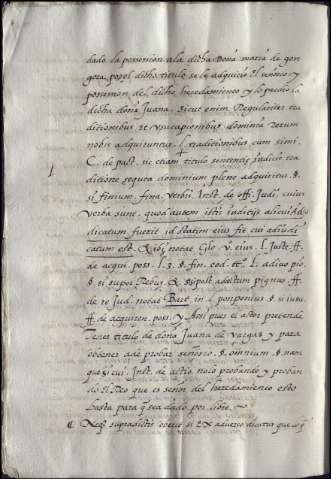 dado la possession ala dicha doña maria de gon
gora, por el dicho titulo se le adquirio el señorio y
possession del dicho heredamiento y lo perdio la
dicha doña Juana. sicut enim regulariter tra
ditionibus et usucapionibus dominia rerum
nobis adquiruntur. l. traditionibus cum simi.
C. de pact. sic etiam titulo sententie judicis tra
ditione sequta dominium plene adquiritur. §.
si finium. fina. verbis Inst. de offi. Judi. cuius
verba sunt. quod autem istis iudicijs alicui
dicatum fuerit id statim eius fit cui adiudi
catum est. & ibi notat Glo. v. eius. l. Juste. ff.
de acqui. poss. l. 3. §. fin.
§. si super rebus
de re Jud. notat Bart. in l. pomponius §. si iussu
ff. de acquiren. poss. y Ansi pues el actor pretende
tener titulo de doña Juana de vargas y para
obtener a de probar señorio. §. omnium. §. nam
que si cui. Inst. de actio. no lo probando y proban
do el Reo que es señor del heredamiento esto
basta para que sea dado por libre.
Neq supradictis